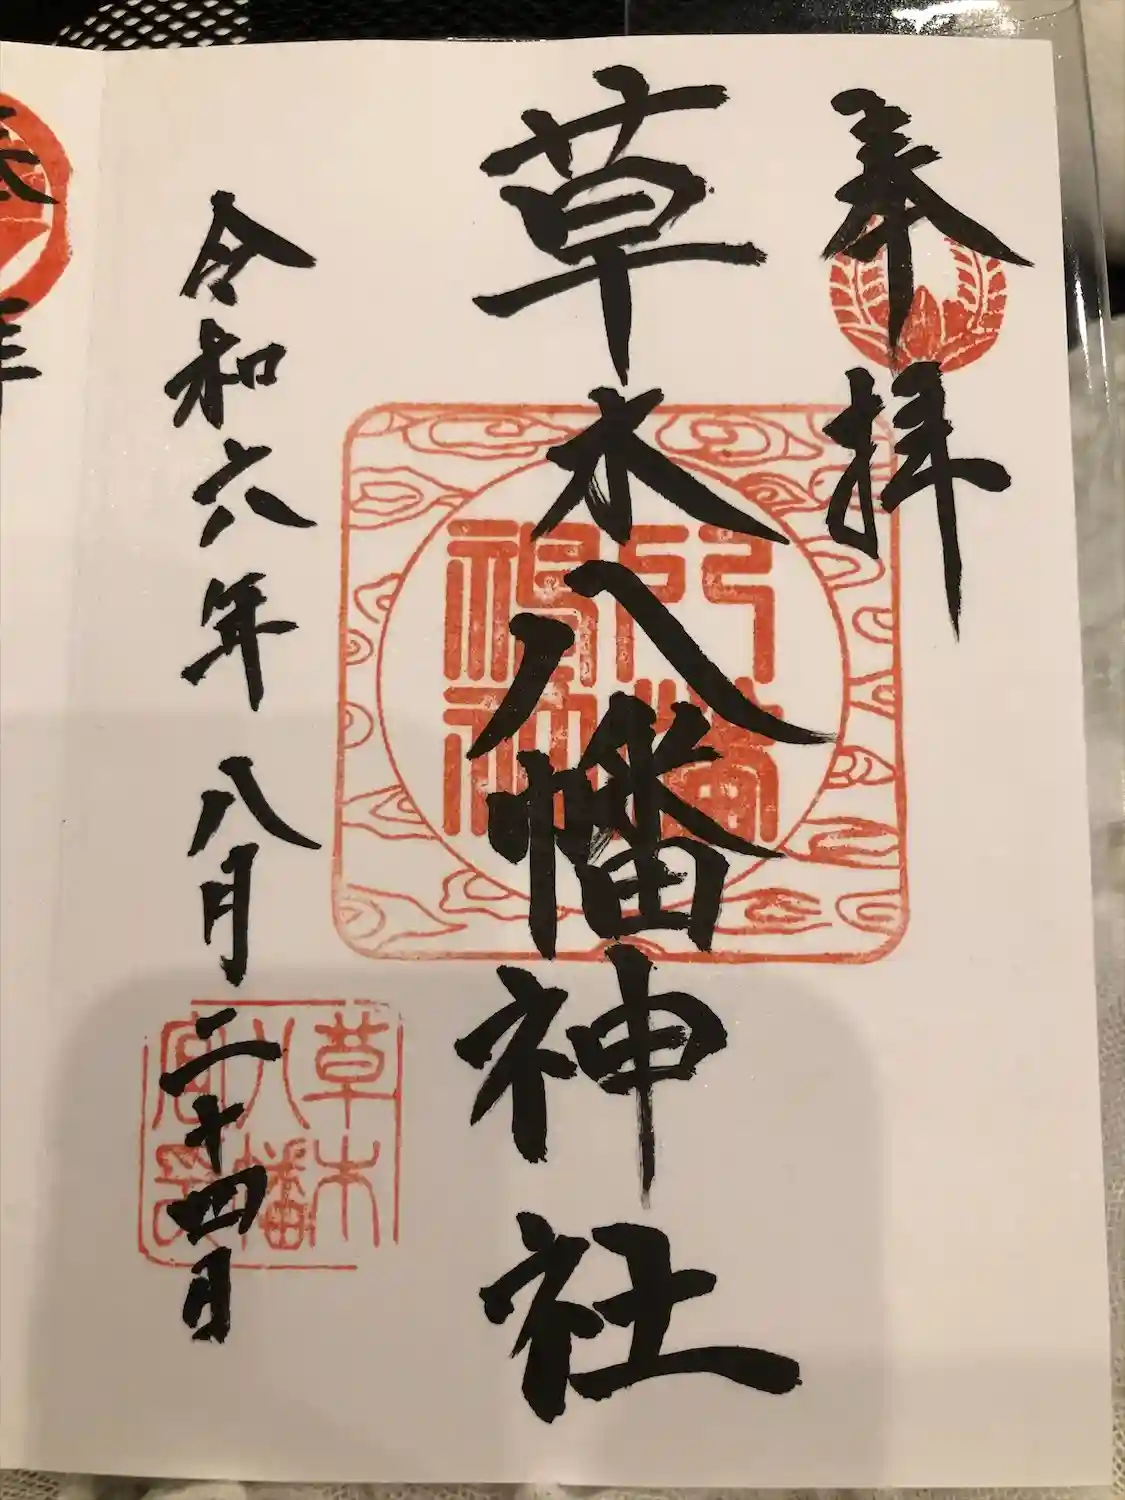 奉拝
草木八幡神社
令和六年八月二十四日
草木
八幡
宮